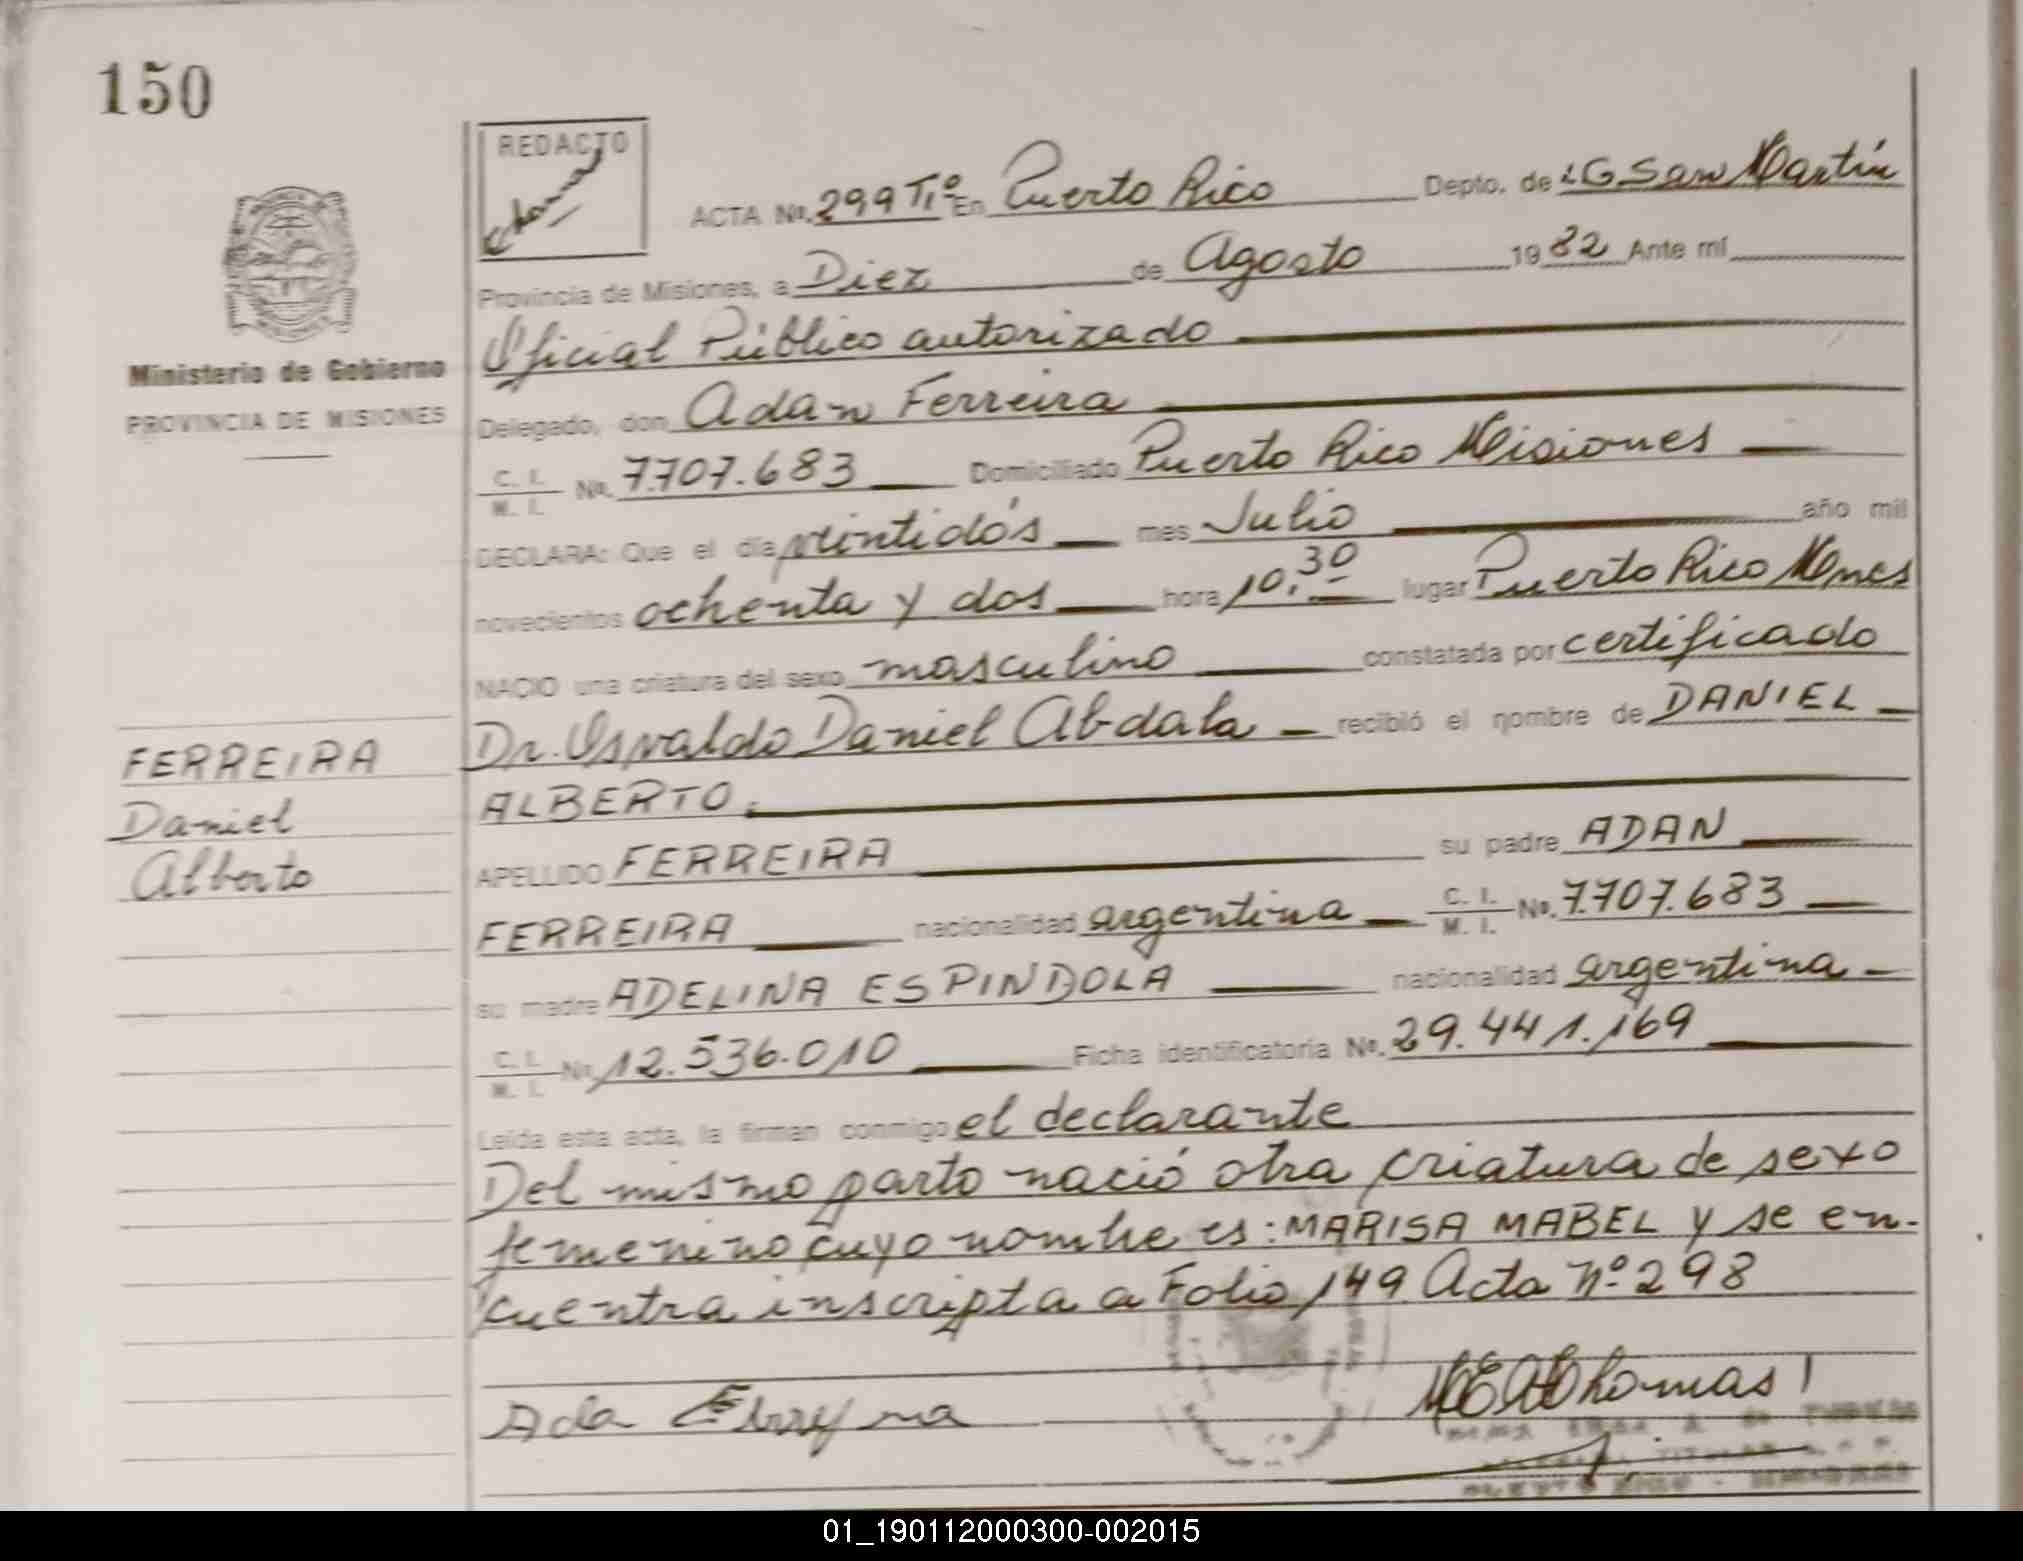 150
REDACTO
ACTA No. 299 T1º En Puerto Rico Depto. de LG San Martín
Provincia de Misiones, a Diez de Agosto 1982 Ante mí
Oficial Público autorizado
Ministerio de Gobierno
PROVINCIA DE MISIONES
Delegado, don Adan Ferreira
C. I. M. I. No. 7.707.683 Domiciliado Puerto Rico Misiones
DECLARA: Que el día vintidós mes Julio año mil
novecientos ochenta y dos hora 10,30 lugar Puerto Rico Mnes
NACIO una criatura del sexo masculino constatada por certificado
Dr. Osvaldo Daniel Abdala recibió el nombre de DANIEL
ALBERTO.
FERREIRA
Daniel
Alberto
APELLIDO FERREIRA su padre ADAN
FERREIRA nacionalidad argentina C. I. M. I. No. 7.707.683
su madre ADELINA ESPINDOLA nacionalidad argentina
C. I. M. I. No. 12.536.010 Ficha identificatoria No. 29.441.169
Leída esta acta, la firman conmigo el declarante
Del mismo parto nació otra criatura de sexo
femenino cuyo nombre es: MARISA MABEL y se en-
cuentra inscripta a Folio 149 Acta Nº 298
01_190112000300-002015